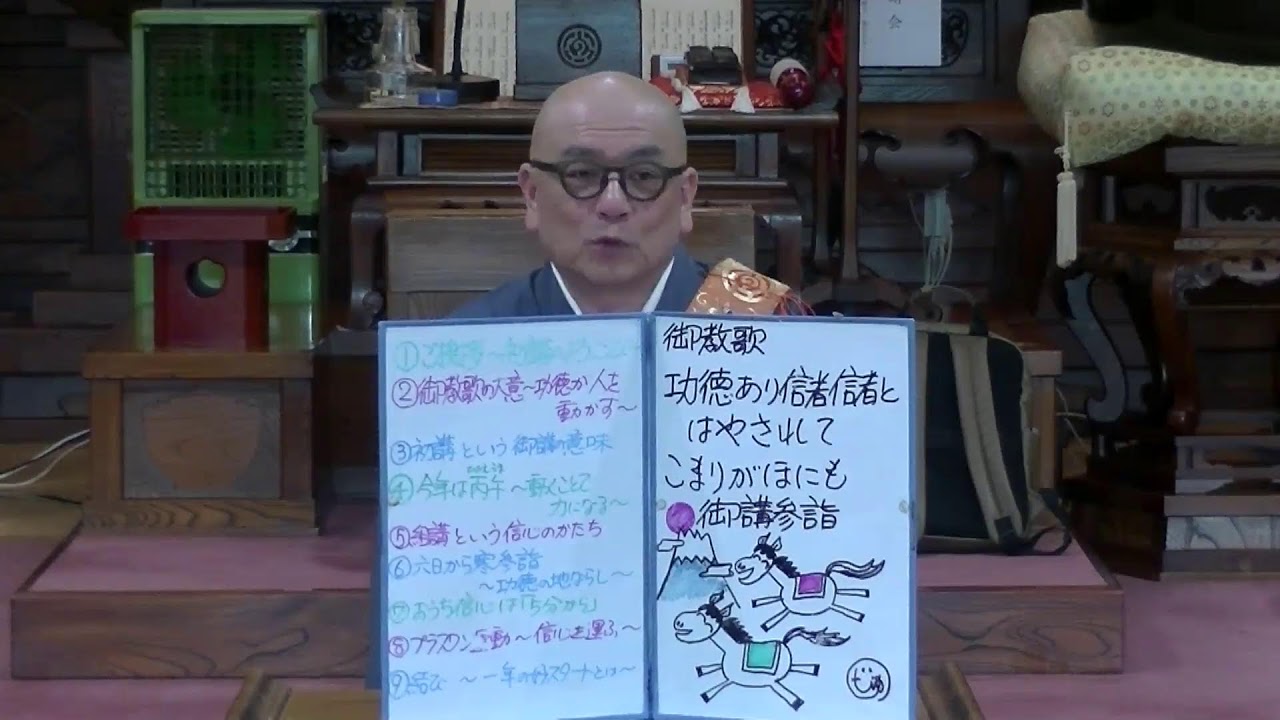 ①ご挨拶～初講
②御教歌の大意～功徳が人を
動かす～
③初講という御講の意味
④今年は丙午～動くことで
力になる～
⑤組講という信心のかたち
⑥六日から寒参詣
～功徳の地ならし～
⑦おうち信心は「自分から」
⑧プラスワン運動～信心を運ぶ～
⑨結び ～一年の好スタートとは～
御教歌
功徳あり信者信者と
はやされて
こまりがほにも
御講参詣
会